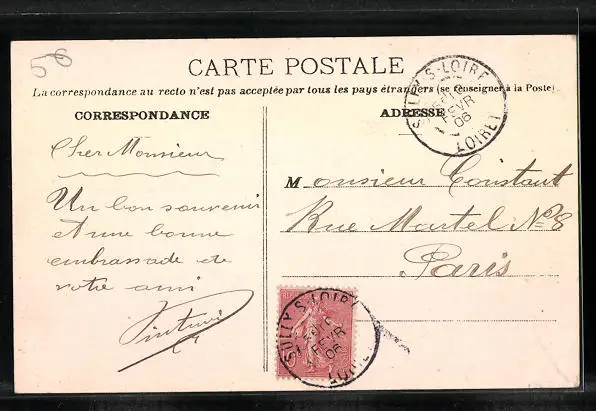 56
CARTE POSTALE
La correspondance au recto n'est pas acceptée par tous les pays étrangers (se renseigner à la Poste)
CORRESPONDANCE
ADRESSE
SULLY-S-LOIRE
FEVR
06
LOIRET
Cher Monsieur
Un bon souvenir
et une bonne
embrassade de
votre ami
Monsieur Constant
Rue Martel No 8
Paris
SULLY-S-LOIRE
FEVR
06
LOIRET